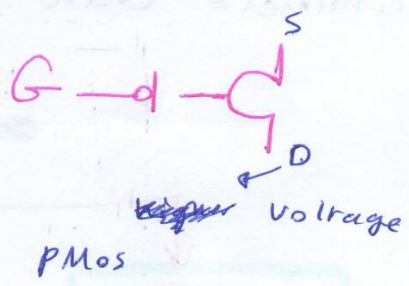 S
G
D
voltage
PMos